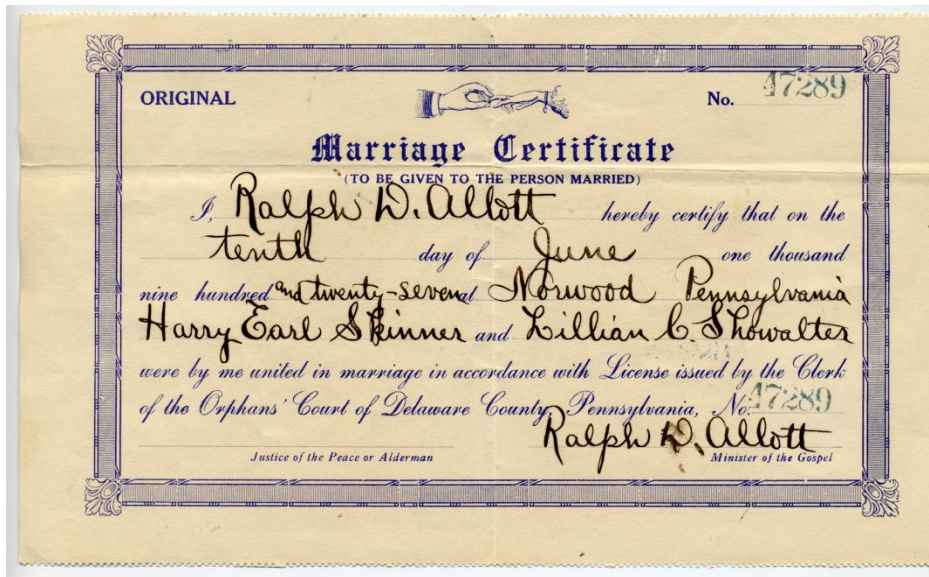 ORIGINAL No. 47289
Marriage Certificate
(TO BE GIVEN TO THE PERSON MARRIED)
I, Ralph D. Allott hereby certify that on the
tenth day of June one thousand
nine hundred and twenty-seven at Norwood Pennsylvania
Harry Earl Skinner and Lillian C. Showalter
were by me united in marriage in accordance with License issued by the Clerk
of the Orphans' Court of Delaware County Pennsylvania, No. 47289
Ralph D. Allott
Justice of the Peace or Alderman Minister of the Gospel